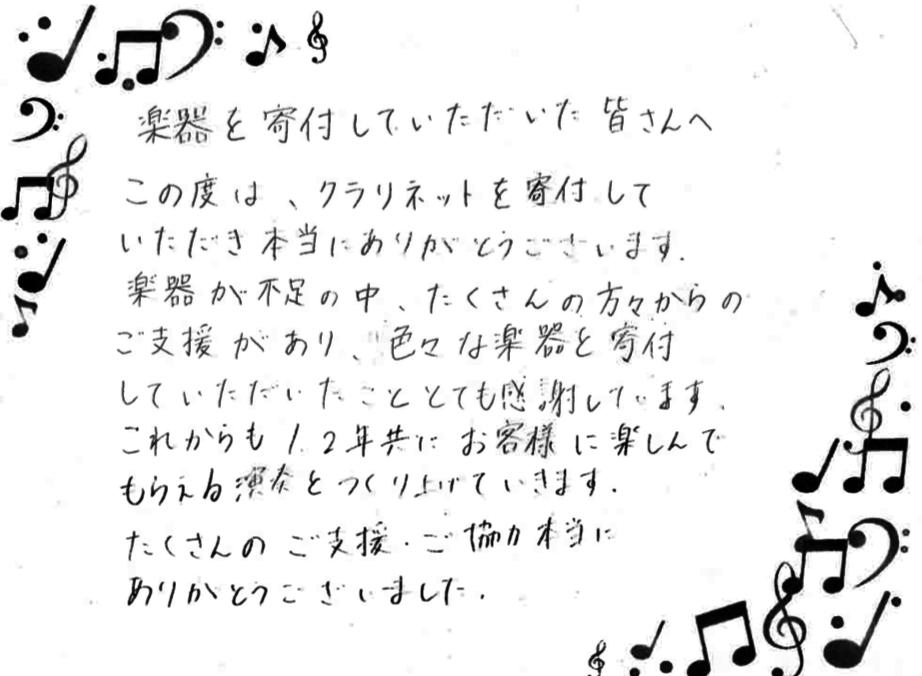 楽器を寄付していただいた皆さんへ
この度は、クラリネットを寄付して
いただき本当にありがとうございます.
楽器が不足の中、たくさんの方々からの
ご支援があり、色々な楽器を寄付
していただいたこととても感謝しています.
これからも1.2年共にお客様に楽しんで
もらえる演奏をつくり上げていきます.
たくさんのご支援・ご協力本当に
ありがとうございました.